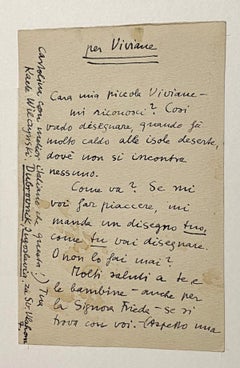 per Viviane
Cara mia piccola Viviane –
mi riconosci? Così
vado disegnare, quando fa
molto caldo alle isole deserte,
dove non si incontra
nessuno.
Come va? Se mi
voi far piacere, mi
manda un disegno tuo,
come tu vai disegnare.
O non lo fai mai?
Molti saluti a te e
le bambine – anche per
la Signora Frieda – se si
trova con voi. (Aspetto una
cartolina con miglior italiano che questa!) Tua
Karla Wilczyński. Dubrovnik, Jugoslavia